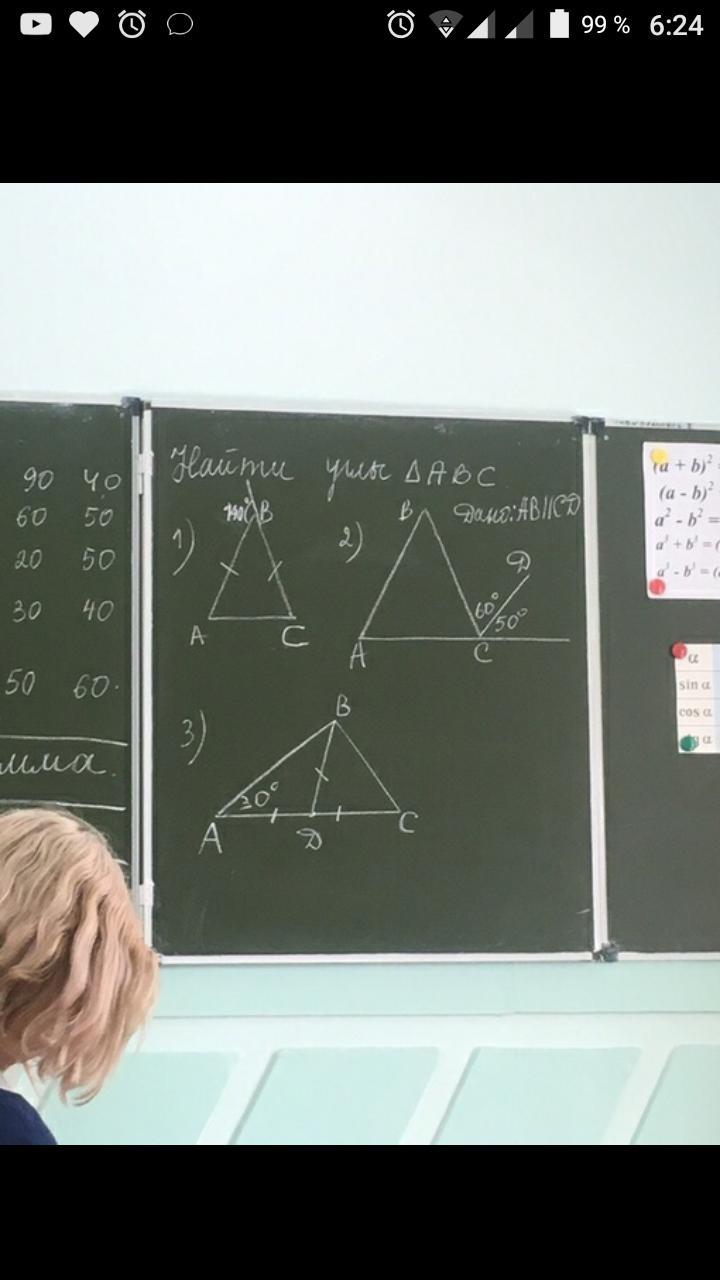 99 % 6:24
90 40
60 50
20 50
30 40
50 60.
мма.
Найти углы ΔABC
1)
B
A
C
2)
B
Дано: AB||CD
D
60°
50°
A
C
3)
B
30°
A
D
C
(a + b)² =
(a - b)²
a² - b² =
a³ + b³ = (
a³ - b³ = (
α
sin α
cos α
tg α